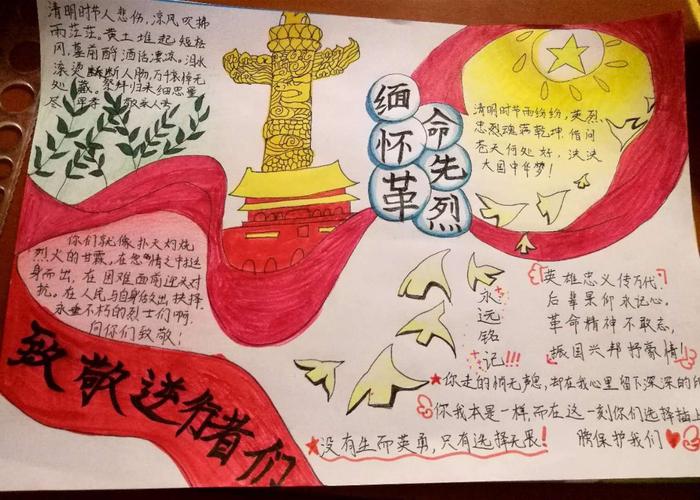 清明时节人悲伤,凉风吹拂
雨茫茫。黄土堆起短松
冈,墓前酹酒话凄凉。泪水
滚烫断人肠,万千哀悼无
处藏。祭拜归来细思量
缅怀革命先烈
清明时节雨纷纷,英烈
忠烈魂满乾坤。借问
苍天何处好,泱泱
大国中华梦!
你们就像扑灭灼烧
烈火的甘霖,在您情之中挺
身而出,在困难面前迎头对
抗,在人民与自身做出抉择。
永垂不朽的烈士们啊,
向你们致敬!
致敬逆行者们
永远铭记!!!
英雄忠义传万代,
后辈景仰永记心。
革命精神不敢忘,
振国兴邦抒豪情!
你走的悄无声息,却在我心里留下深深的
你我本是一样,而在这一刻你们选择插上
膀保护我们
没有生而英勇,只有选择无畏!